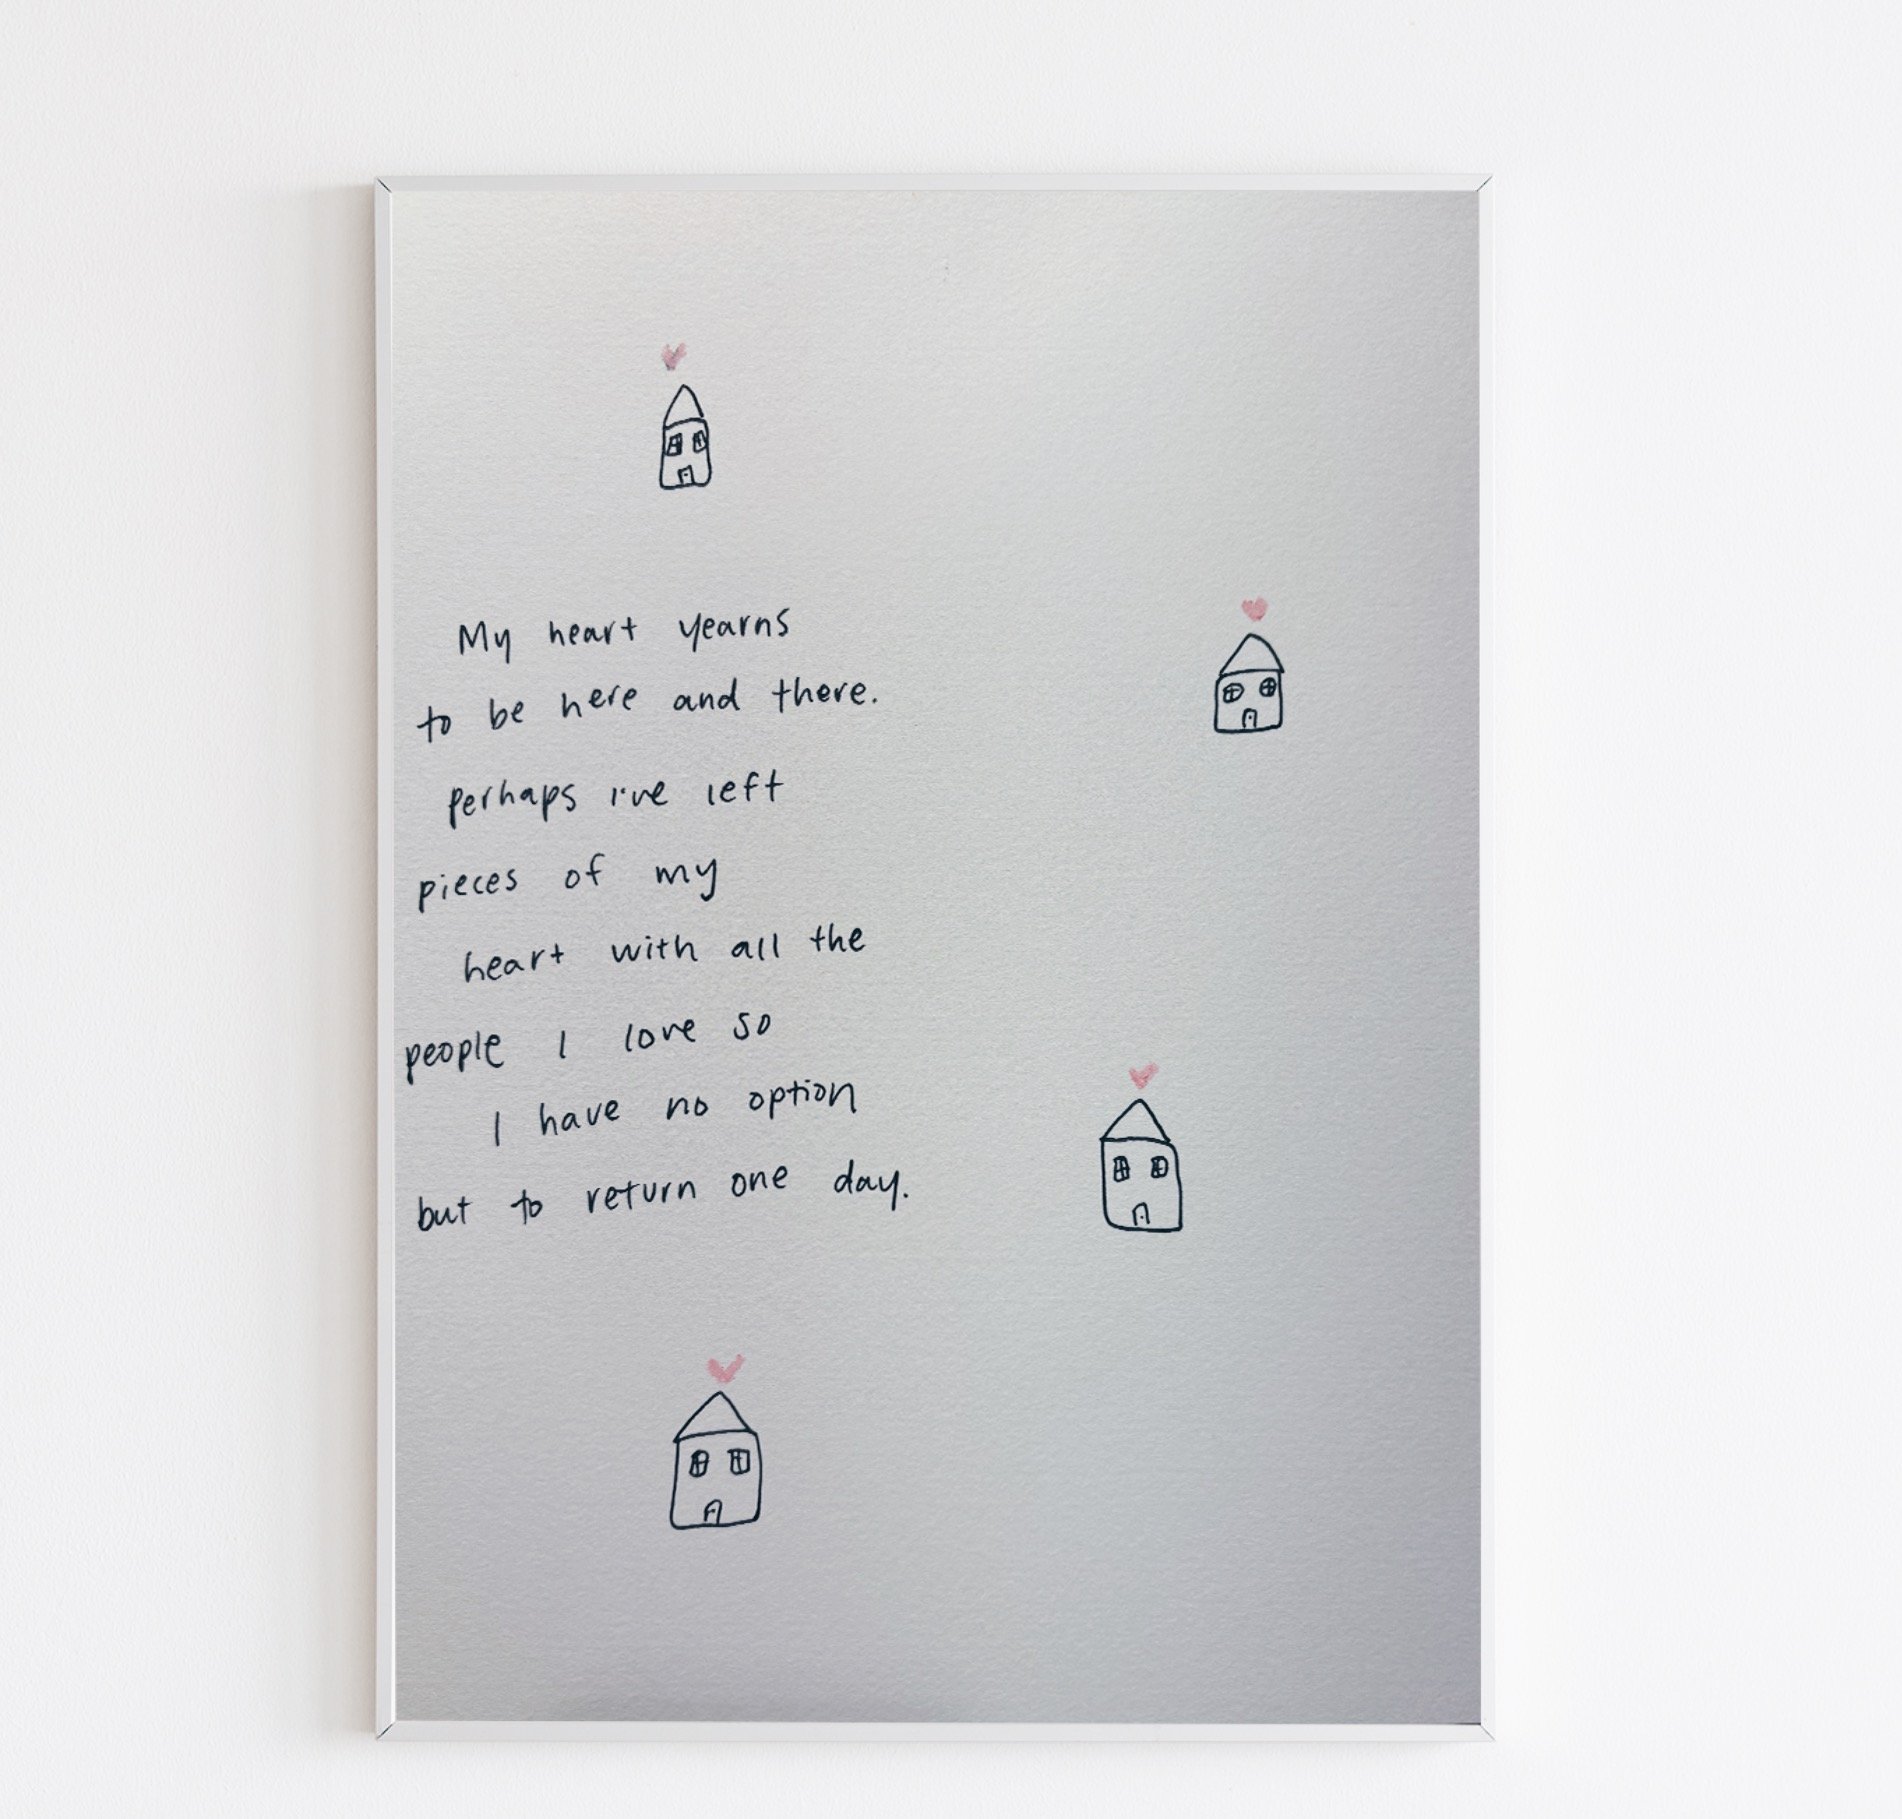 My heart yearns
to be here and there.
perhaps i've left
pieces of my
heart with all the
people I love so
I have no option
but to return one day.